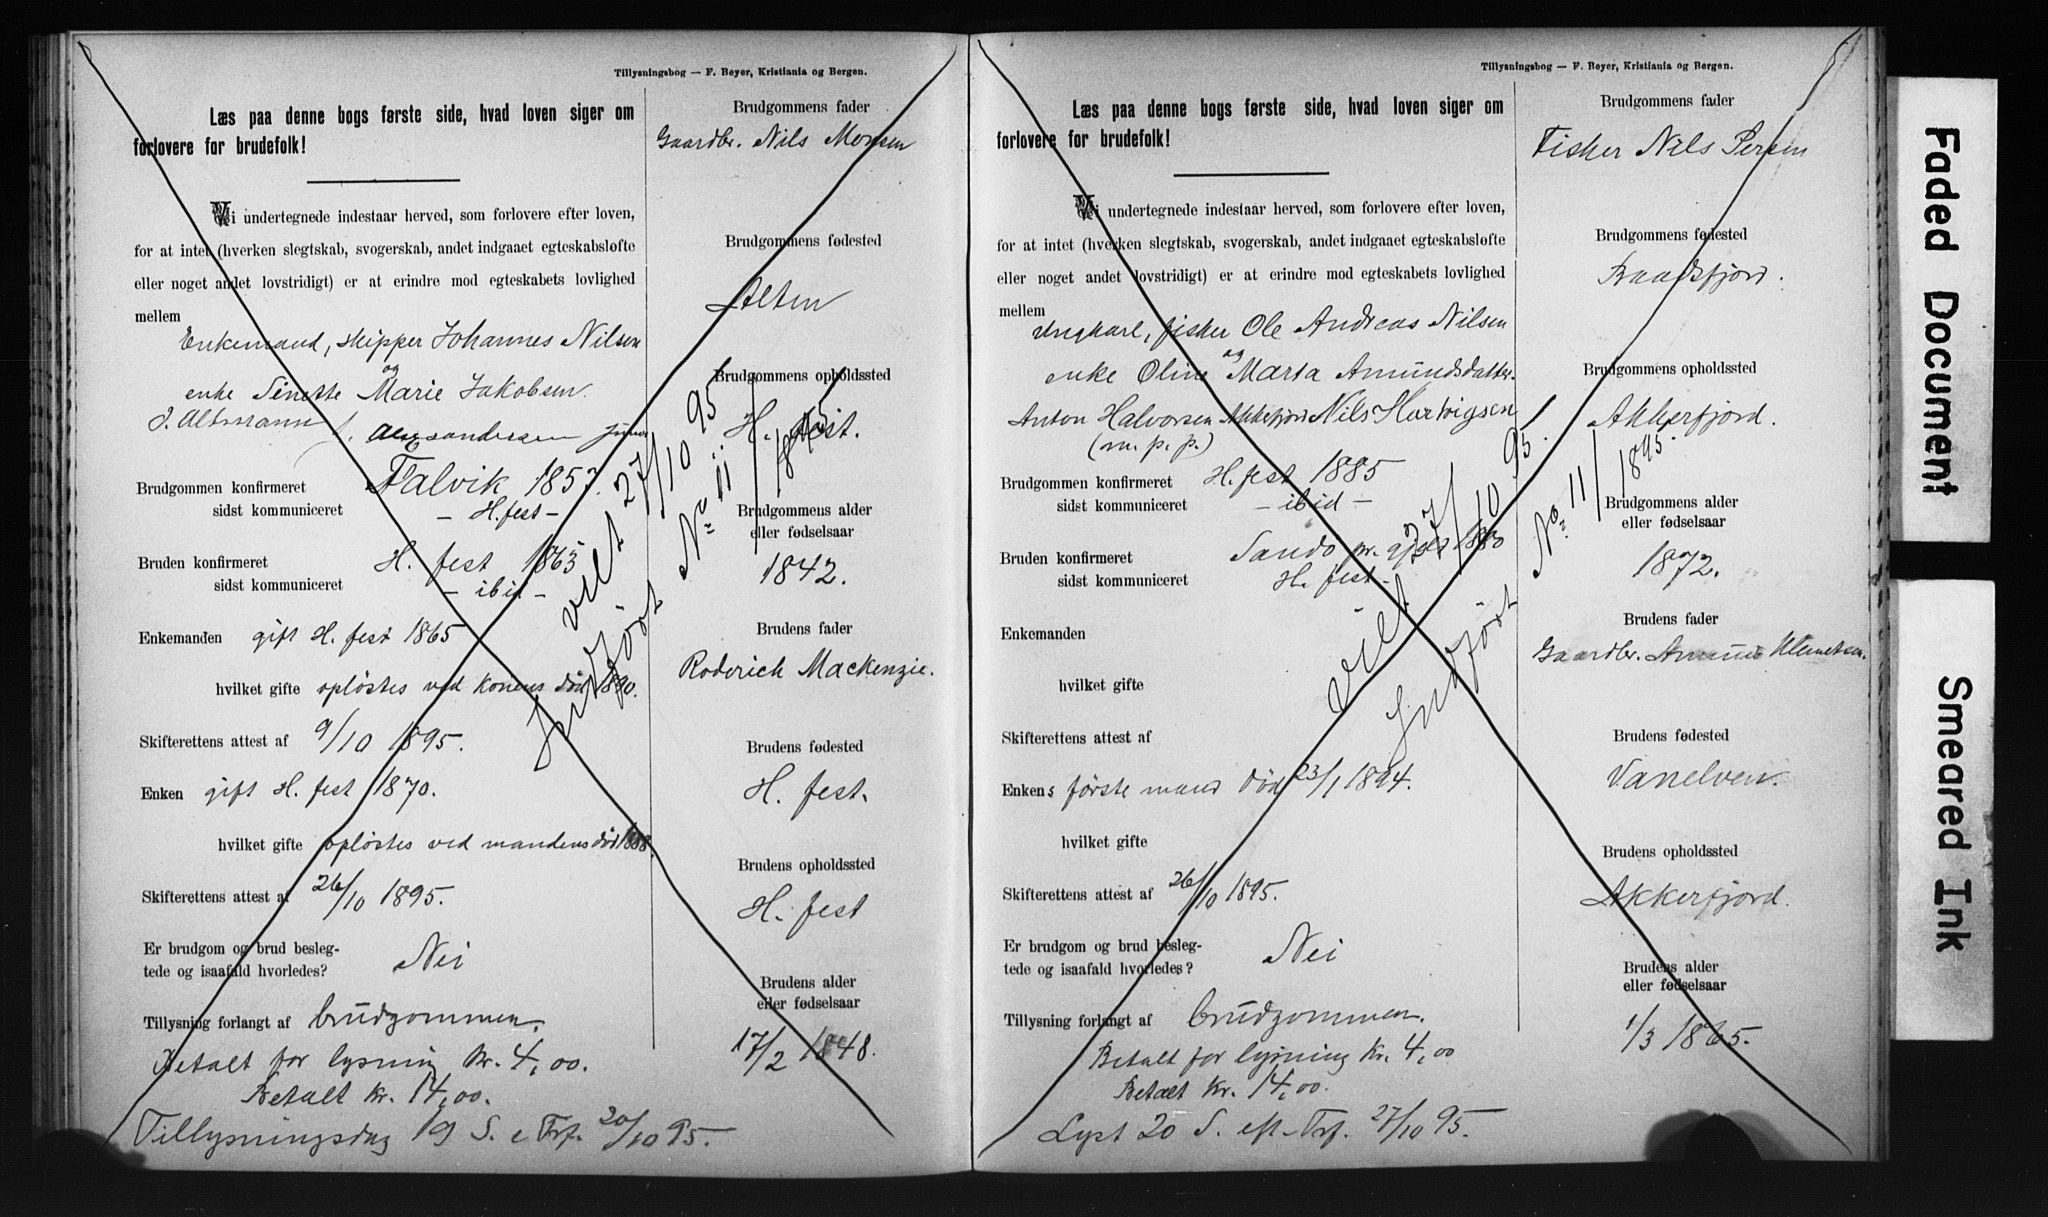 Tillysningsbog — F. Beyer, Kristiania og Bergen.
Læs paa denne bogs første side, hvad loven siger om
forlovere for brudefolk!
Vi undertegnede indestaar herved, som forlovere efter loven,
for at intet (hverken slegtskab, svogerskab, andet indgaaet egteskabsløfte
eller noget andet lovstridigt) er at erindre mod egteskabets lovlighed
mellem
Enkemand, skipper Johannes Nilsen
og
enke Sinette Marie Jakobsen.
J. Altmann
Brudgommen konfirmeret Talvik 1857.
sidst kommuniceret - H.fest -
Bruden konfirmeret H. fest 1865
sidst kommuniceret - ibid -
Enkemanden gift H. fest 1865
hvilket gifte opløstes ved konens død 1890.
Skifterettens attest af 9/10 1895.
Enken gift H. fest 1870.
hvilket gifte opløstes ved mandens død 1888.
Skifterettens attest af 26/10 1895.
Er brudgom og brud besleg-
tede og isaafald hvorledes? Nei
Tillysning forlangt af brudgommen.
Betalt for lysning kr. 4,00.
Betalt kr. 14,00.
Tillysningsdag 19 S. e Trf. 20/10 95.
viet 27/10 95
Indført No 11 / 1895
Brudgommens fader
Gaardbr. Nils Monsen
Brudgommens fødested
Alten
Brudgommens opholdssted
H. fest.
Brudgommens alder
eller fødselsaar
1842.
Brudens fader
Roderich Mackenzie.
Brudens fødested
H. fest.
Brudens opholdssted
H. fest
Brudens alder
eller fødselsaar
17/2 1848.
Tillysningsbog — F. Beyer, Kristiania og Bergen.
Læs paa denne bogs første side, hvad loven siger om
forlovere for brudefolk!
Vi undertegnede indestaar herved, som forlovere efter loven,
for at intet (hverken slegtskab, svogerskab, andet indgaaet egteskabsløfte
eller noget andet lovstridigt) er at erindre mod egteskabets lovlighed
mellem
Ungkarl, fisker Ole Andreas Nilsen
og
enke Oline Marta Amundsdatter.
Anton Halvorsen Akkefjord Nils Hartvigsen
(m. p. p.)
Brudgommen konfirmeret H. fest 1885
sidst kommuniceret - ibid -
Bruden konfirmeret Sandø pr. 1880
sidst kommuniceret H. fest -
Enkemanden
hvilket gifte
Skifterettens attest af
Enkens første mand død 23/1 1894.
hvilket gifte
Skifterettens attest af 26/10 1895.
Er brudgom og brud besleg-
tede og isaafald hvorledes? Nei
Tillysning forlangt af brudgommen.
Betalt for lysning kr. 4,00
Betalt kr. 14,00.
Lyst 20 S. eft. Trf. 27/10 95.
Viet 27/10 95.
Indført No 11 / 1895.
Brudgommens fader
Fisker Nils Persen
Brudgommens fødested
Baadsfjord.
Brudgommens opholdssted
Akkerfjord.
Brudgommens alder
eller fødselsaar
1872.
Brudens fader
Gaardbr. Amund Klemetsen.
Brudens fødested
Vanelven.
Brudens opholdssted
Akkerfjord.
Brudens alder
eller fødselsaar
1/3 1865.
Faded Document
Smeared Ink